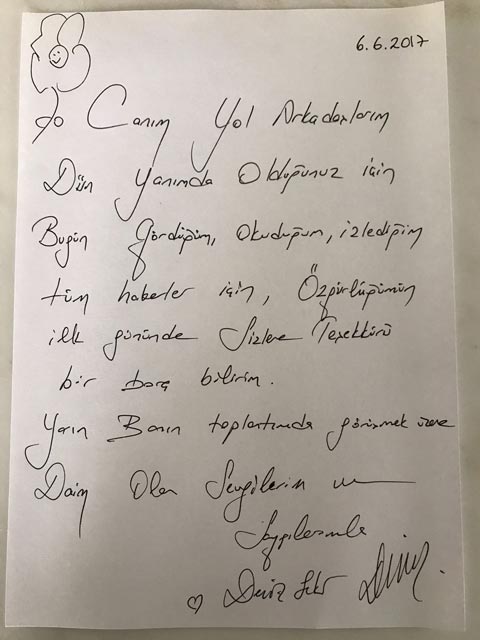 6.6.2017
Canım Yol Arkadaşlarım
Dün Yanımda Olduğunuz için
Bugün Gördüğüm, Okuduğum, izlediğim
tüm haberler için, Özgürlüğümün
ilk gününde Sizlere Teşekkürü
bir borç bilirim.
Yarın Basın toplantımda görüşmek üzere
Daim Olan Sevgilerim ve
Saygılarımla
Deniz Seki